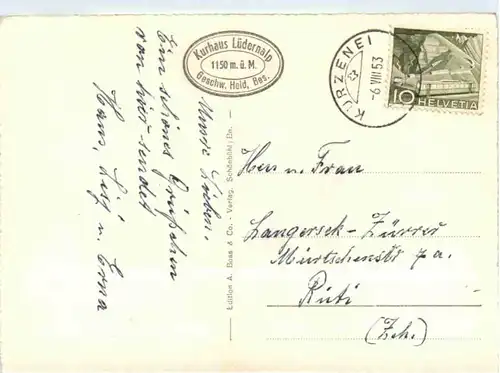 Kurhaus Lüdernalp
1150 m. ü. M.
Geschw. Held, Bes.
KURZENEI
-6.VIII.53
10 HELVETIA
Meine Lieben.
Ein schönes Grüsschen
von hier sendet
Hans, Lisi u. Erna
Edition A. Boss & Co. - Verlag, Schönbühl/Bn.
Herr u. Frau
Langersek-Zürrer
Mürtschenstr
Rüti
(Zch.)